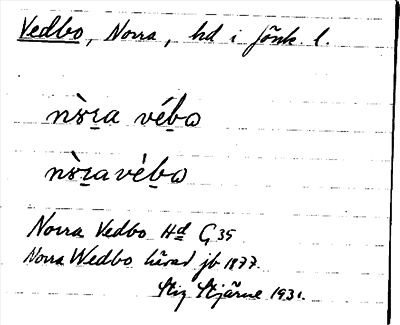 Vedbo, Norra, hd i Jönk. l.
nὸrra vébo
nὸrravèbo
Norra Vedbo Hd G 35
Norra Wedbo härad jb 1877.
Stig Stjärne 1931.